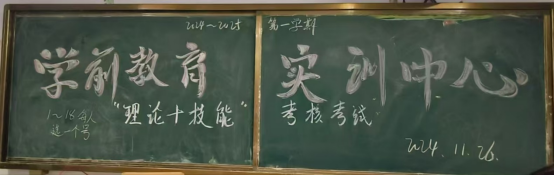 2024~2025 第一学期
学前教育 实训中心
"理论+技能" 考核考试
1~18每人
选一个号
2024.11.26.